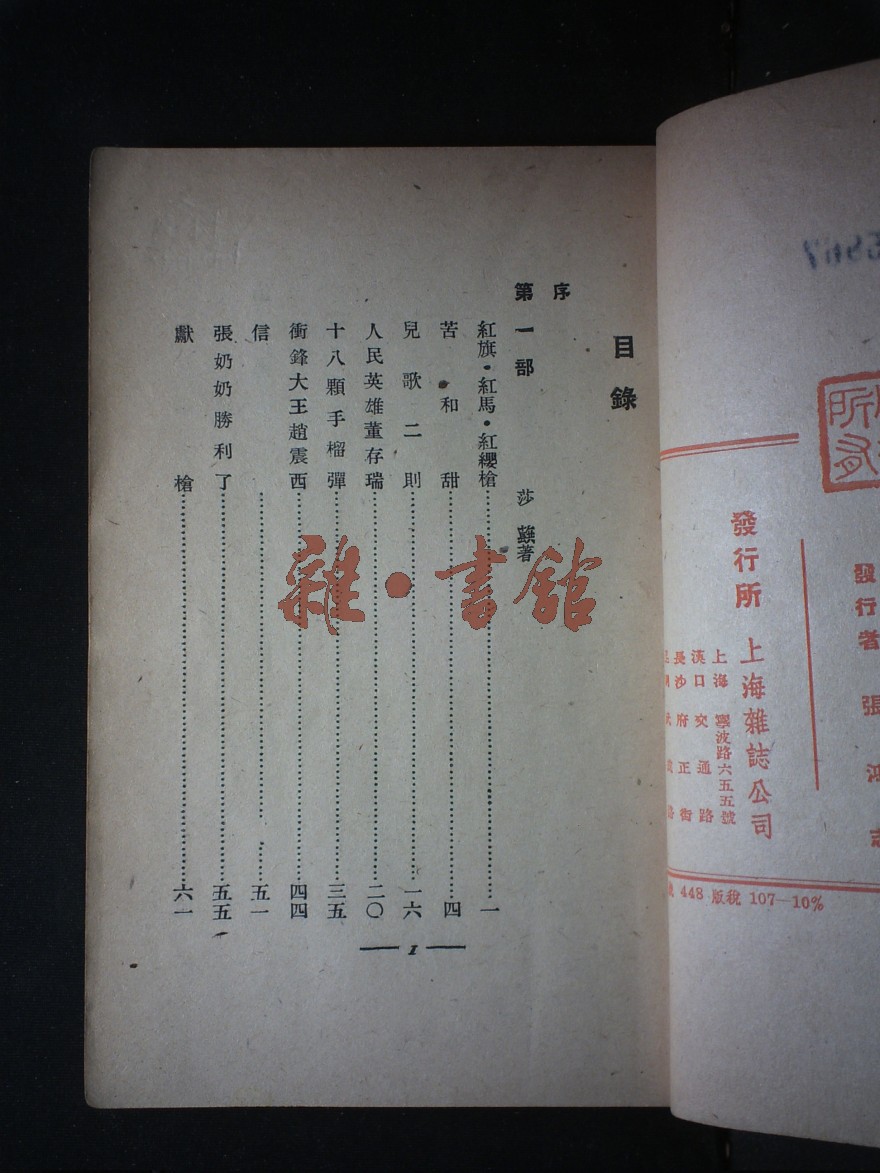 發行者 張鴻志
發行所 上海雜誌公司
上海 寧波路六五五號
漢口 交通路
長沙 府正街
448 版税 107—10%
目錄
序
第一部 莎蕻著
紅旗·紅馬·紅纓槍……一
苦和甜……四
兒歌二則……一六
人民英雄董存瑞……二〇
十八顆手榴彈……三五
衝鋒大王趙震西……四四
信……五一
張奶奶勝利了……五五
獻槍……六一
— 1 —
雜·書館